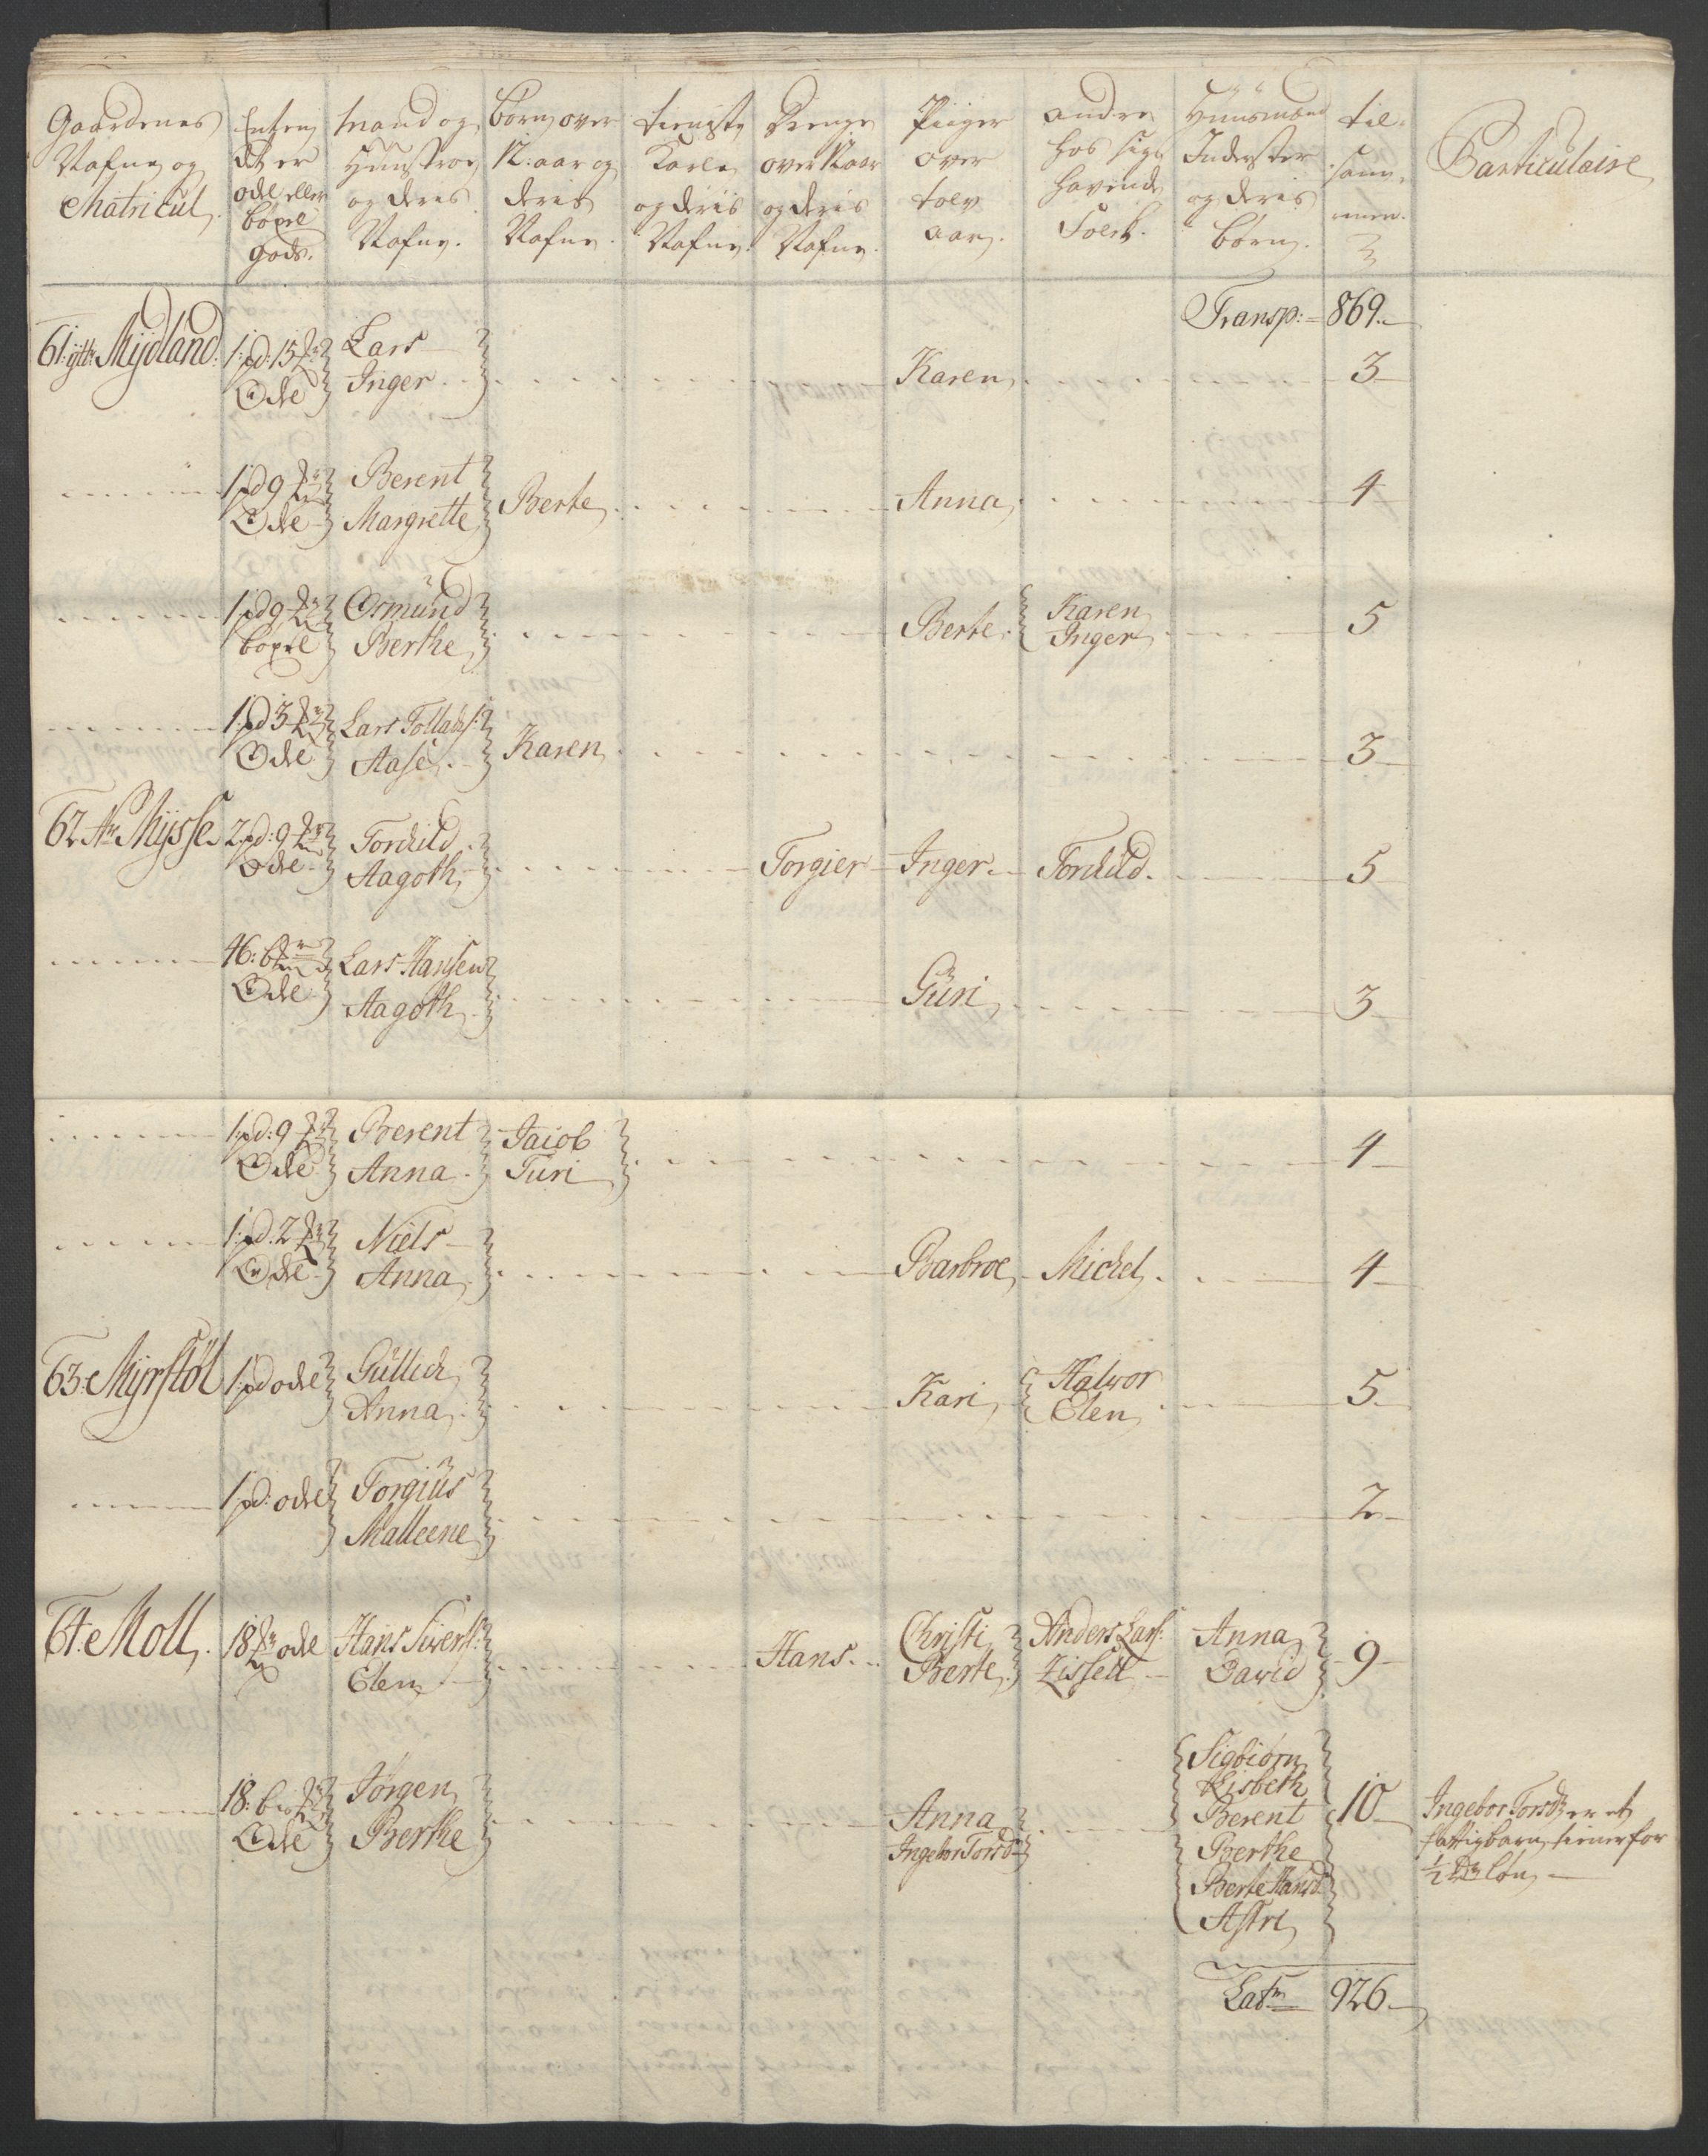 Gaardenes
Nafne og
Matricul.
Enten
det er
odel eller
böxel
gods.
Mand og
Huustroe
og deres
Nafne.
Börn over
12: aar og
deris
Nafne.
tieniste
Karle
og deris
Nafne.
Drenge
over 12 aar
og deris
Nafne.
Piiger
over
tolv
aar.
andre
hos sig
havende
Folch.
Huusmænd
Inderster
og deris
börn.
til-
sam-
men.
Particulaire
Transp: 869.
61: ytt: Mydland: 1: pd: 15
Ode
Lars
Inger
Karen 3
1 pd 9
Ode
Berent
Margrette
Berte Anna 4
1 pd 9
böxel
Ormünd
Berthe
Berte
Karen
Inger
5
1: pd 3
Ode
Lars Tollachs:
Aase
Karen 3
62 Myssel 2 pd: 9
Ode
Torchild
Aagoth
Torgier Inger Torchild 5
46: b
Ode
Lars Hansen
Aagoth
Güri 3
1: pd: 9
Ode
Berent
Anna
Jacob
Turi
4
1: pd. 2
Ode
Niels
Anna
Barbroe Michel 4
63: Myrstöl 1: pd ode
Güllich
Anna
Kari
Halvor
Elen
5
1 pd: ode
Torgiüs
Malleene
2
64: Moll 18 ode
Hans Siverts:
Elen
Hans
Christi
Berte
Anders Lars:
Lissell
Anna
David
9
18: b
Ode
Jörgen
Berthe
Anna
Ingebor Torsd
Sigbiörn
Lisbeth
Berent
Berthe
Berte Hansd:
Astri
10
Ingebor Torsd er et
fattigbarn, tiener for
1/2 lön
Lat 926